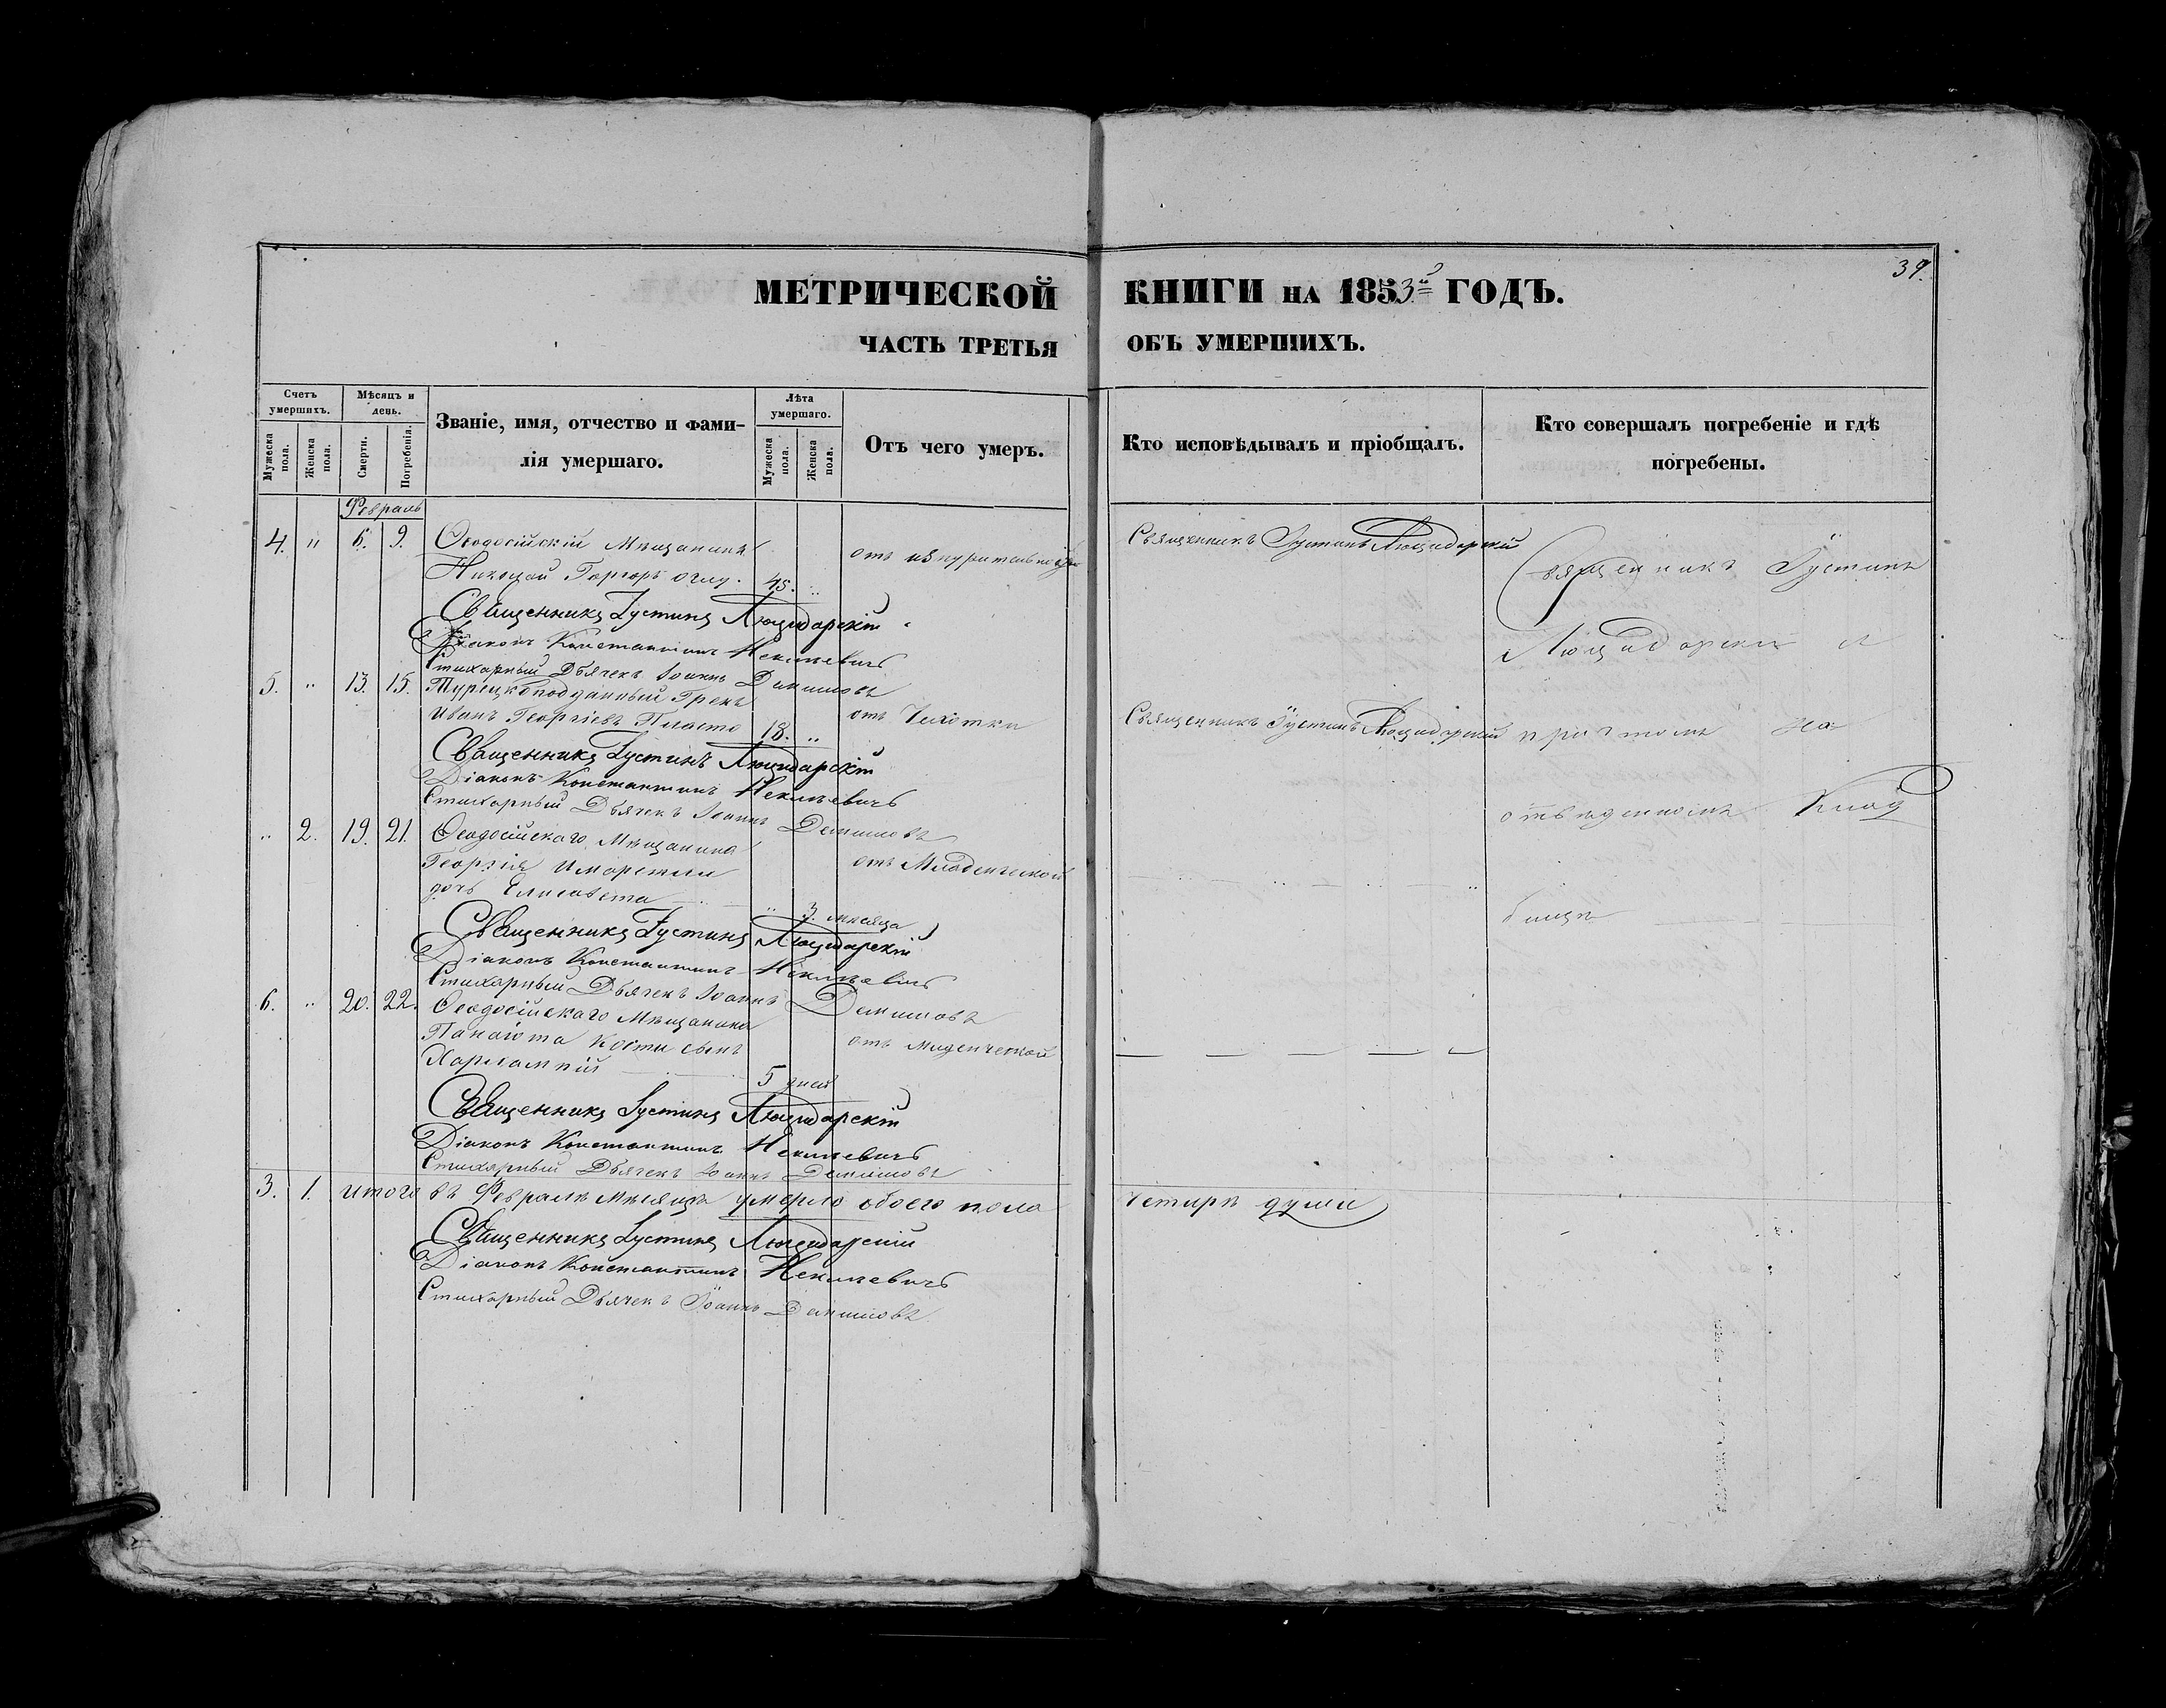 39.
МЕТРИЧЕСКОЙ КНИГИ НА 1853й ГОДЪ.
ЧАСТЬ ТРЕТЬЯ ОБЪ УМЕРШИХЪ.
Счетъ умершихъ.
Мужеска пола.
Женска пола.
Мѣсяцъ и день.
Смерти.
Погребенія.
Званіе, имя, отчество и фами-
лія умершаго.
Лѣта умершаго.
Мужеска пола.
Женска пола.
Отъ чего умеръ.
Кто исповѣдывалъ и пріобщалъ.
Кто совершалъ погребеніе и гдѣ
погребены.
Февраль
4. " 6. 9. Ѳеодосійскій Мѣщанинъ
Николай оглу. 45. "
отъ изнурительной
Священникъ Іустинъ Люцидарскій
Священникъ Іустинъ Люцидарскій
Діаконъ Константинъ Некилевичъ
Стихарный Дьячекъ Іоаннъ Данилов
5. " 13. 15. Турецкоподданный Грекъ
Иванъ Георгіевъ 18. "
отъ Чахотки
Священникъ Іустинъ Люцидарскій
Священникъ Іустинъ Люцидарскій
Діаконъ Константинъ Некилевичъ
Стихарный Дьячекъ Іоаннъ
" 2. 19. 21. Ѳеодосійскаго Мѣщанина
Георгія
дочь Елисавета " 3. мѣсяца
отъ Младенческой
Священникъ Іустинъ Люцидарскій
Діаконъ Константинъ Некилевичъ
Стихарный Дьячекъ Іоаннъ
6. " 20. 22. Ѳеодосійскаго Мѣщанина
Панаіота Кости сынъ
Харлампій 5 дней
отъ Младенческой
Священникъ Іустинъ Люцидарскій
Діаконъ Константинъ Некилевичъ
Стихарный Дьячекъ Іоаннъ
Священникъ Іустинъ
Люцидарскій
причтомъ на
отведенномъ Клад
бищѣ
3. 1. итого въ Февралѣ Мѣсяцѣ умерло обоего пола четырѣ души
Священникъ Іустинъ Люцидарскій
Діаконъ Константинъ Некилевичъ
Стихарный Дьячекъ Іоаннъ